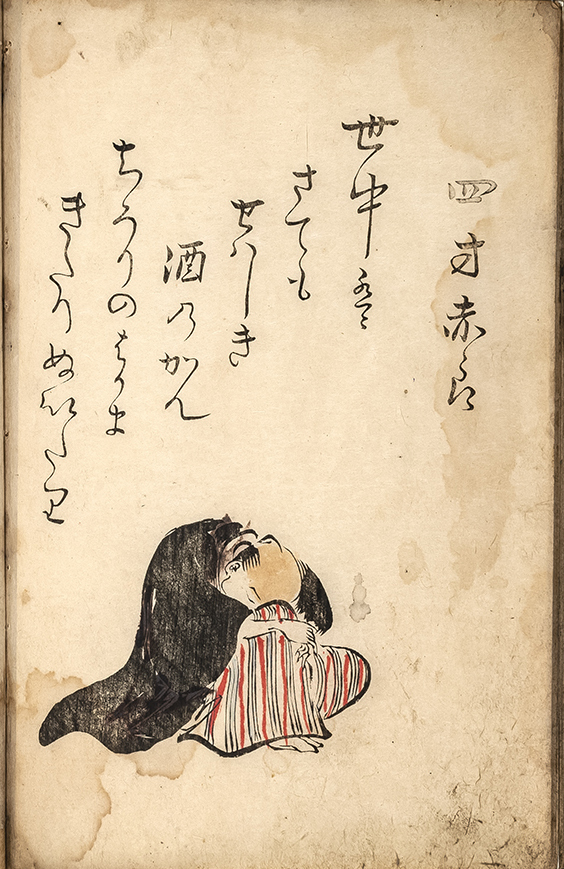 四方赤良
世中は
さても
せはしき
酒のかん
ちろりのはかま
きたりぬいたり